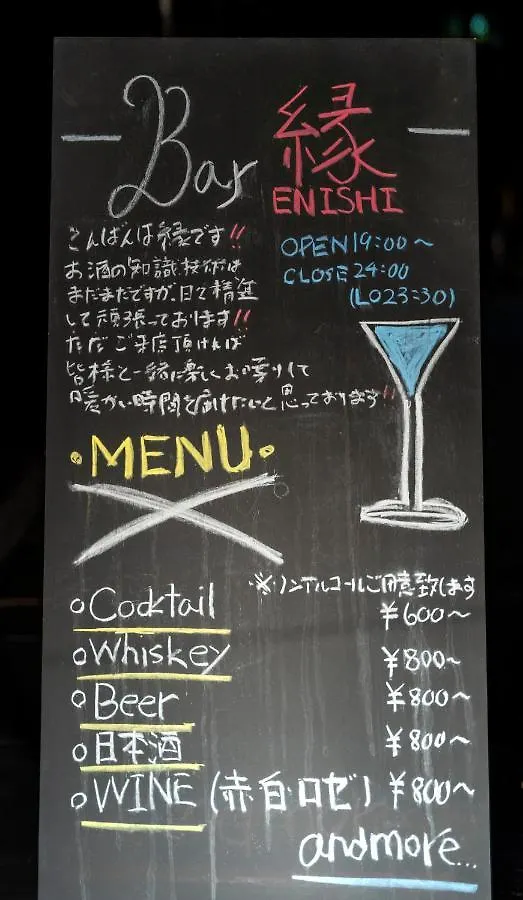 Bar 縁
ENISHI
こんばんは縁です!!
お酒の知識技術は
まだまだですが、日々精進
して頑張っております!!
ただご来店頂ければ
皆様と一緒に楽しくお喋りして
暖かい時間を届けたいと思っております!!
OPEN 19:00〜
CLOSE 24:00
(LO23:30)
・MENU・
※ノンアルコールご用意致します
○Cocktail ¥600〜
○Whiskey ¥800〜
○Beer ¥800〜
○日本酒 ¥800〜
○WINE (赤・白・ロゼ) ¥800〜
andmore...